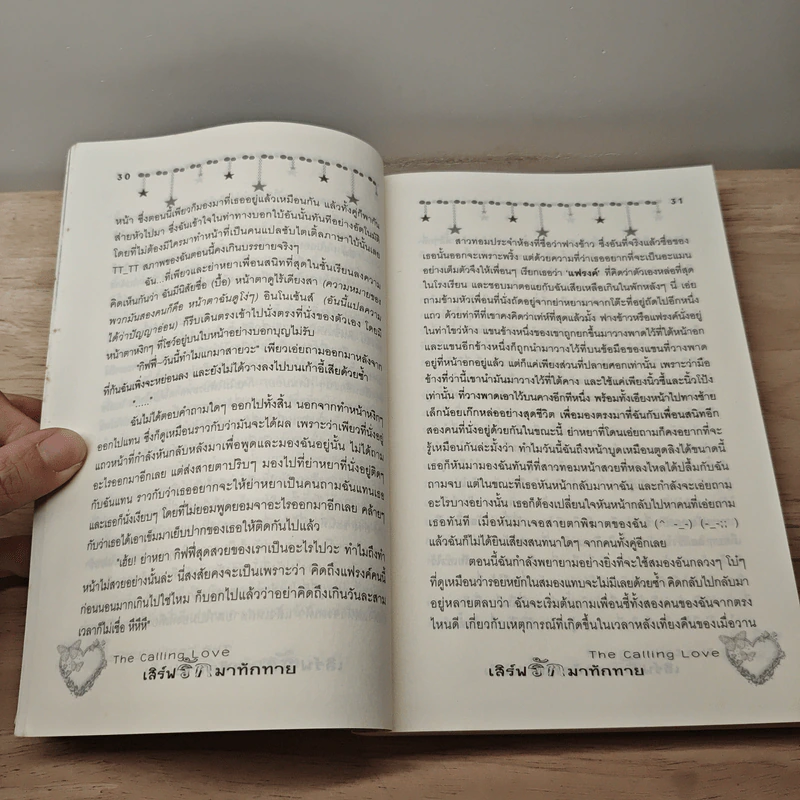 30
หน้า ซึ่งตอนนี้เพียวก็มองมาที่เธออยู่แล้วเหมือนกัน แล้วทั้งคู่ก็พากัน
ส่ายหัวไปมา ซึ่งฉันเข้าใจในท่าทางบอกใบ้อันนั้นทันทีอย่างอัตโนมัติ
โดยที่ไม่ต้องมีใครมาทำหน้าที่เป็นคนแปลซับไตเติ้ลภาษาใบ้นั้นเลย
TT_TT สภาพของฉันตอนนี้คงเกินบรรยายจริงๆ
ฉัน...ที่เพียวและย่าหยาเพื่อนสนิทที่สุดในชั้นเรียนลงความ
คิดเห็นกันว่า ฉันมีนิสัยซื่อ (บื้อ) หน้าตาดูไร้เดียงสา (ความหมายของ
พวกมันสองคนก็คือ หน้าตาฉันดูโง่ๆ) อินโนเซ้นส์ (อันนี้แปลความ
ได้ว่าปัญญาอ่อน) ก็รีบเดินตรงเข้าไปนั่งตรงที่นั่งของตัวเอง โดยมี
หน้าตาหงิกๆ ที่โชว์อยู่บนใบหน้าอย่างบอกบุญไม่รับ
"กิฟฟี่~วันนี้ทำไมแกมาสายวะ" เพียวเอ่ยถามออกมาหลังจาก
ที่ก้นฉันเพิ่งจะหย่อนลง และยังไม่ได้วางลงไปบนเก้าอี้เสียด้วยซ้ำ
"....."
ฉันไม่ได้ตอบคำถามใดๆ ออกไปทั้งสิ้น นอกจากทำหน้าหงิกๆ
ออกไปแทน ซึ่งก็ดูเหมือนราวกับว่าจะได้ผล เพราะว่าเพียวที่นั่งอยู่
แถวหน้าที่กำลังหันกลับหลังมาเพื่อพูดและมองฉันอยู่นั้น ไม่ได้ถาม
อะไรออกมาอีกเลย แต่ส่งสายตาปริบๆ มองไปที่ย่าหยาที่นั่งอยู่ติดๆ
กับฉันแทน ราวกับว่าเธออยากจะให้ย่าหยาเป็นคนถามฉันแทนเธอ
และเธอก็นั่งเงียบๆ โดยที่ไม่ยอมพูดยอมจาอะไรออกมาอีกเลย คล้ายๆ
กับว่าเธอได้เอาเข็มมาเย็บปากของเธอให้ติดกันไปแล้ว
"เฮ้ย! ย่าหยา กิฟฟี่สุดสวยของเราเป็นอะไรไปวะ ทำไมถึงทำ
หน้าไม่สวยอย่างนั้นล่ะ นี่สงสัยคงจะเป็นเพราะว่า คิดถึงแฟรงค์คนนี้
ก่อนนอนมากเกินไปใช่ไหม ก็บอกไปแล้วว่าอย่าคิดถึงเกินวันละสาม
เวลาก็ไม่เชื่อ หึหึหึ"
The Calling Love
เสิร์ฟรักมาทักทาย
31
สาวทอมประจำห้องที่ชื่อว่าฟางข้าว ซึ่งอันที่จริงแล้วชื่อของ
เธอนั้นออกจะเพราะพริ้ง แต่ด้วยความที่ว่าเธออยากที่จะเป็นอะแมน
อย่างเต็มตัวจึงให้เพื่อนๆ เรียกเธอว่า 'แฟรงค์' ที่คิดว่าตัวเองหล่อที่สุด
ในโรงเรียน และชอบมาตอแยกับฉันเสียเหลือเกินในพักหลังๆ นี่ เอ่ย
ถามข้ามหัวเพื่อนที่นั่งถัดอยู่จากย่าหยามาจากโต๊ะที่อยู่ถัดไปอีกหนึ่ง
แถว ด้วยท่าทีที่เขาคงคิดว่าเท่ห์ที่สุดแล้วมั้ง ฟางข้าวหรือแฟรงค์นั่งอยู่
ในท่าไขว่ห้าง แขนข้างหนึ่งของเขาถูกยกขึ้นมาวางพาดไว้ที่ใต้หน้าอก
และแขนอีกข้างหนึ่งก็ถูกนำมาวางไว้ที่บนข้อมือของแขนที่วางพาด
อยู่ที่หน้าอกอยู่แล้ว แต่ก็แค่เพียงส่วนที่ปลายศอกเท่านั้น เพราะว่ามือ
ข้างที่ว่านี้เขานำมันมาวางไว้ที่ใต้คาง และใช้แค่เพียงนิ้วชี้และนิ้วโป้ง
เท่านั้น ที่วางพาดเอาไว้บนคางอีกทีหนึ่ง พร้อมทั้งเอียงหน้าไปทางซ้าย
เล็กน้อยเก๊กหล่ออย่างสุดชีวิต เพื่อมองตรงมาที่ฉันกับเพื่อนสนิทอีก
สองคนที่นั่งอยู่ด้วยกันในขณะนี้ ย่าหยาที่โดนเอ่ยถามก็คงอยากที่จะ
รู้เหมือนกันล่ะมั้งว่า ทำไมวันนี้ฉันถึงหน้าบูดเหมือนตูดลิงได้ขนาดนี้
เธอก็หันมามองฉันทันทีที่สาวทอมหน้าสวยที่หลงใหลได้ปลื้มกับฉัน
ถามจบ แต่ในขณะที่เธอหันหน้ากลับมาหาฉัน และกำลังจะเอ่ยถาม
อะไรบางอย่างนั้น เธอก็ต้องเปลี่ยนใจหันหน้ากลับไปหาคนที่เอ่ยถาม
เธอทันที เมื่อหันมาเจอสายตาพิฆาตของฉัน (^ -_-) (-_-;; )
แล้วฉันก็ไม่ได้ยินเสียงสนทนาใดๆ จากคนทั้งคู่อีกเลย
ตอนนี้ฉันกำลังพยายามอย่างยิ่งที่จะใช้สมองอันกลวงๆ โบ๋ๆ
ที่ดูเหมือนว่ารอยหยักในสมองแทบจะไม่มีเลยด้วยซ้ำ คิดกลับไปกลับมา
อยู่หลายตลบว่า ฉันจะเริ่มต้นถามเพื่อนซี้ทั้งสองคนของฉันจากตรง
ไหนดี เกี่ยวกับเหตุการณ์ที่เกิดขึ้นในเวลาหลังเที่ยงคืนของเมื่อวาน
The Calling Love
เสิร์ฟรักมาทักทาย